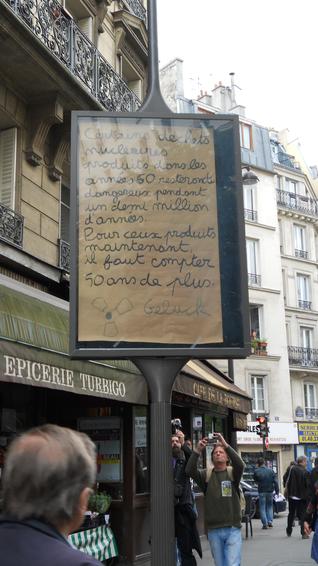 Certains déchets
nucléaires
produits dans les
années 50 resteront
dangereux pendant
un demi million
d'années.
Pour ceux produits
maintenant,
il faut compter
50 ans de plus.
Geluck
EPICERIE TURBIGO